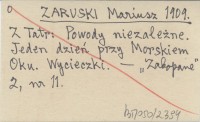 o ZARUSKI Mariusz 1909.
Z Tatr: Powody niezależne.
Jeden dzień przy Morskiem
Oku. Wycieczki. — „Zakopane"
2, nr 11.